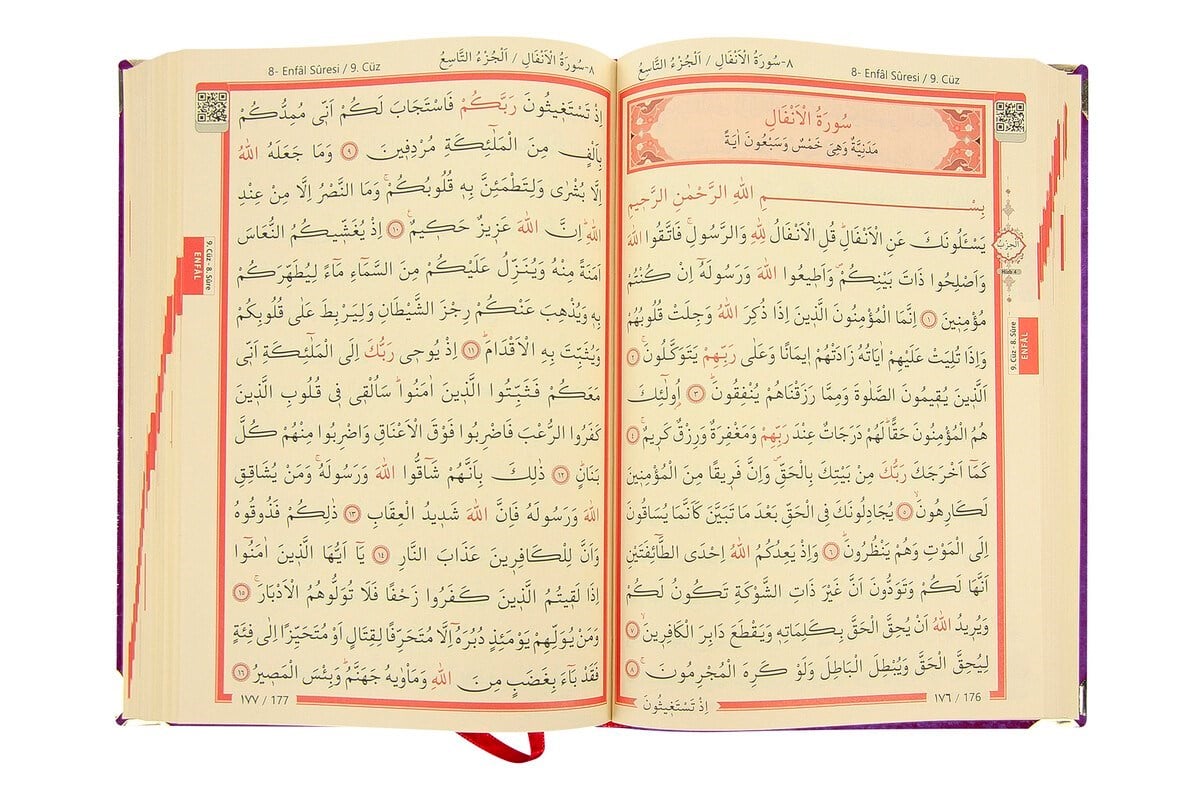 8- Enfâl Sûresi / 9. Cüz
٨-سُورَةُ الْاَنْفَالِ / اَلْجُزْءُ التَّاسِعُ
سُورَةُ الْاَنْفَالِ
مَدَنِيَّةٌ وَهِىَ خَمْسٌ وَسَبْعُونَ اٰيَةً
بِسْمِ اللّٰهِ الرَّحْمٰنِ الرَّحٖيمِ
يَسْـَٔلُونَكَ عَنِ الْاَنْفَالِؕ قُلِ الْاَنْفَالُ لِلّٰهِ وَالرَّسُولِۚ فَاتَّقُوا اللّٰهَ
وَاَصْلِحُوا ذَاتَ بَيْنِكُمْ وَاَطٖيعُوا اللّٰهَ وَرَسُولَهُٓ اِنْ كُنْتُمْ
مُؤْمِنٖينَ ﴿١﴾ اِنَّمَا الْمُؤْمِنُونَ الَّذٖينَ اِذَا ذُكِرَ اللّٰهُ وَجِلَتْ قُلُوبُهُمْ
وَاِذَا تُلِيَتْ عَلَيْهِمْ اٰيَاتُهُ زَادَتْهُمْ اٖيمَانًا وَعَلٰى رَبِّهِمْ يَتَوَكَّلُونَۚ ﴿٢﴾
اَلَّذٖينَ يُقٖيمُونَ الصَّلٰوةَ وَمِمَّا رَزَقْنَاهُمْ يُنْفِقُونَؕ ﴿٣﴾ اُو۬لٰٓئِكَ
هُمُ الْمُؤْمِنُونَ حَقًّاؕ لَهُمْ دَرَجَاتٌ عِنْدَ رَبِّهِمْ وَمَغْفِرَةٌ وَرِزْقٌ كَرٖيمٌۚ ﴿٤﴾
كَمَٓا اَخْرَجَكَ رَبُّكَ مِنْ بَيْتِكَ بِالْحَقِّ وَاِنَّ فَرٖيقًا مِنَ الْمُؤْمِنٖينَ
لَكَارِهُونَۙ ﴿٥﴾ يُجَادِلُونَكَ فِى الْحَقِّ بَعْدَ مَا تَبَيَّنَ كَاَنَّمَا يُسَاقُونَ
اِلَى الْمَوْتِ وَهُمْ يَنْظُرُونَؕ ﴿٦﴾ وَاِذْ يَعِدُكُمُ اللّٰهُ اِحْدَى الطَّٓائِفَتَيْنِ
اَنَّهَا لَكُمْ وَتَوَدُّونَ اَنَّ غَيْرَ ذَاتِ الشَّوْكَةِ تَكُونُ لَكُمْ
وَيُرٖيدُ اللّٰهُ اَنْ يُحِقَّ الْحَقَّ بِكَلِمَاتِهٖ وَيَقْطَعَ دَابِرَ الْكَافِرٖينَۙ ﴿٧﴾
لِيُحِقَّ الْحَقَّ وَيُبْطِلَ الْبَاطِلَ وَلَوْ كَرِهَ الْمُجْرِمُونَۚ ﴿٨﴾
١٧٦ / 176
اِذْ تَسْتَغٖيثُونَ
اَلْحِزْبُ
Hizb 4
9. Cüz - 8. Sûre
ENFÂL
8- Enfâl Sûresi / 9. Cüz
٨-سُورَةُ الْاَنْفَالِ / اَلْجُزْءُ التَّاسِعُ
اِذْ تَسْتَغٖيثُونَ رَبَّكُمْ فَاسْتَجَابَ لَكُمْ اَنّٖى مُمِدُّكُمْ
بِاَلْفٍ مِنَ الْمَلٰٓئِكَةِ مُرْدِفٖينَ ﴿٩﴾ وَمَا جَعَلَهُ اللّٰهُ
اِلَّا بُشْرٰى وَلِتَطْمَئِنَّ بِهٖ قُلُوبُكُمْۚ وَمَا النَّصْرُ اِلَّا مِنْ عِنْدِ
اللّٰهِؕ اِنَّ اللّٰهَ عَزٖيزٌ حَكٖيمٌۚ ﴿١٠﴾ اِذْ يُغَشّٖيكُمُ النُّعَاسَ
اَمَنَةً مِنْهُ وَيُنَزِّلُ عَلَيْكُمْ مِنَ السَّمَٓاءِ مَٓاءً لِيُطَهِّرَكُمْ
بِهٖ وَيُذْهِبَ عَنْكُمْ رِجْزَ الشَّيْطَانِ وَلِيَرْبِطَ عَلٰى قُلُوبِكُمْ
وَيُثَبِّتَ بِهِ الْاَقْدَامَؕ ﴿١١﴾ اِذْ يُوحٖى رَبُّكَ اِلَى الْمَلٰٓئِكَةِ اَنّٖى
مَعَكُمْ فَثَبِّتُوا الَّذٖينَ اٰمَنُواؕ سَاُلْقٖى فٖى قُلُوبِ الَّذٖينَ
كَفَرُوا الرُّعْبَ فَاضْرِبُوا فَوْقَ الْاَعْنَاقِ وَاضْرِبُوا مِنْهُمْ كُلَّ
بَنَانٍؕ ﴿١٢﴾ ذٰلِكَ بِاَنَّهُمْ شَٓاقُّوا اللّٰهَ وَرَسُولَهُۚ وَمَنْ يُشَاقِقِ
اللّٰهَ وَرَسُولَهُ فَاِنَّ اللّٰهَ شَدٖيدُ الْعِقَابِ ﴿١٣﴾ ذٰلِكُمْ فَذُوقُوهُ
وَاَنَّ لِلْكَافِرٖينَ عَذَابَ النَّارِ ﴿١٤﴾ يَٓا اَيُّهَا الَّذٖينَ اٰمَنُٓوا
اِذَا لَقٖيتُمُ الَّذٖينَ كَفَرُوا زَحْفًا فَلَا تُوَلُّوهُمُ الْاَدْبَارَۚ ﴿١٥﴾
وَمَنْ يُوَلِّهِمْ يَوْمَئِذٍ دُبُرَهُٓ اِلَّا مُتَحَرِّفًا لِقِتَالٍ اَوْ مُتَحَيِّزًا اِلٰى فِئَةٍ
فَقَدْ بَٓاءَ بِغَضَبٍ مِنَ اللّٰهِ وَمَاْوٰيهُ جَهَنَّمُؕ وَبِئْسَ الْمَصٖيرُ ﴿١٦﴾
١٧٧ / 177
9. Cüz - 8. Sûre
ENFÂL